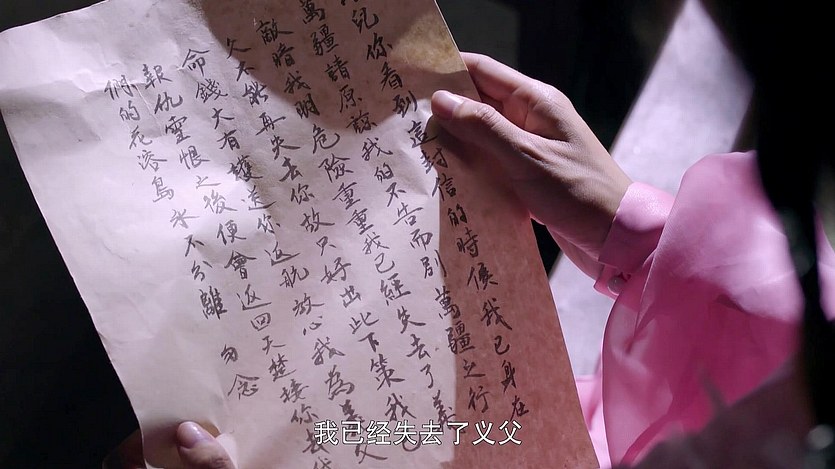 兒你看到這封信的時候我已身在
萬疆請原諒我的不告而別萬疆之行
敵暗我明危險重重我已經失去了義
父不能再失去你故只好出此下策我已
命錢大有護送你返航放心我為義父
報仇雪恨之後便會返回天楚接你去
們的花溶島永不分離 勿念
我已经失去了义父